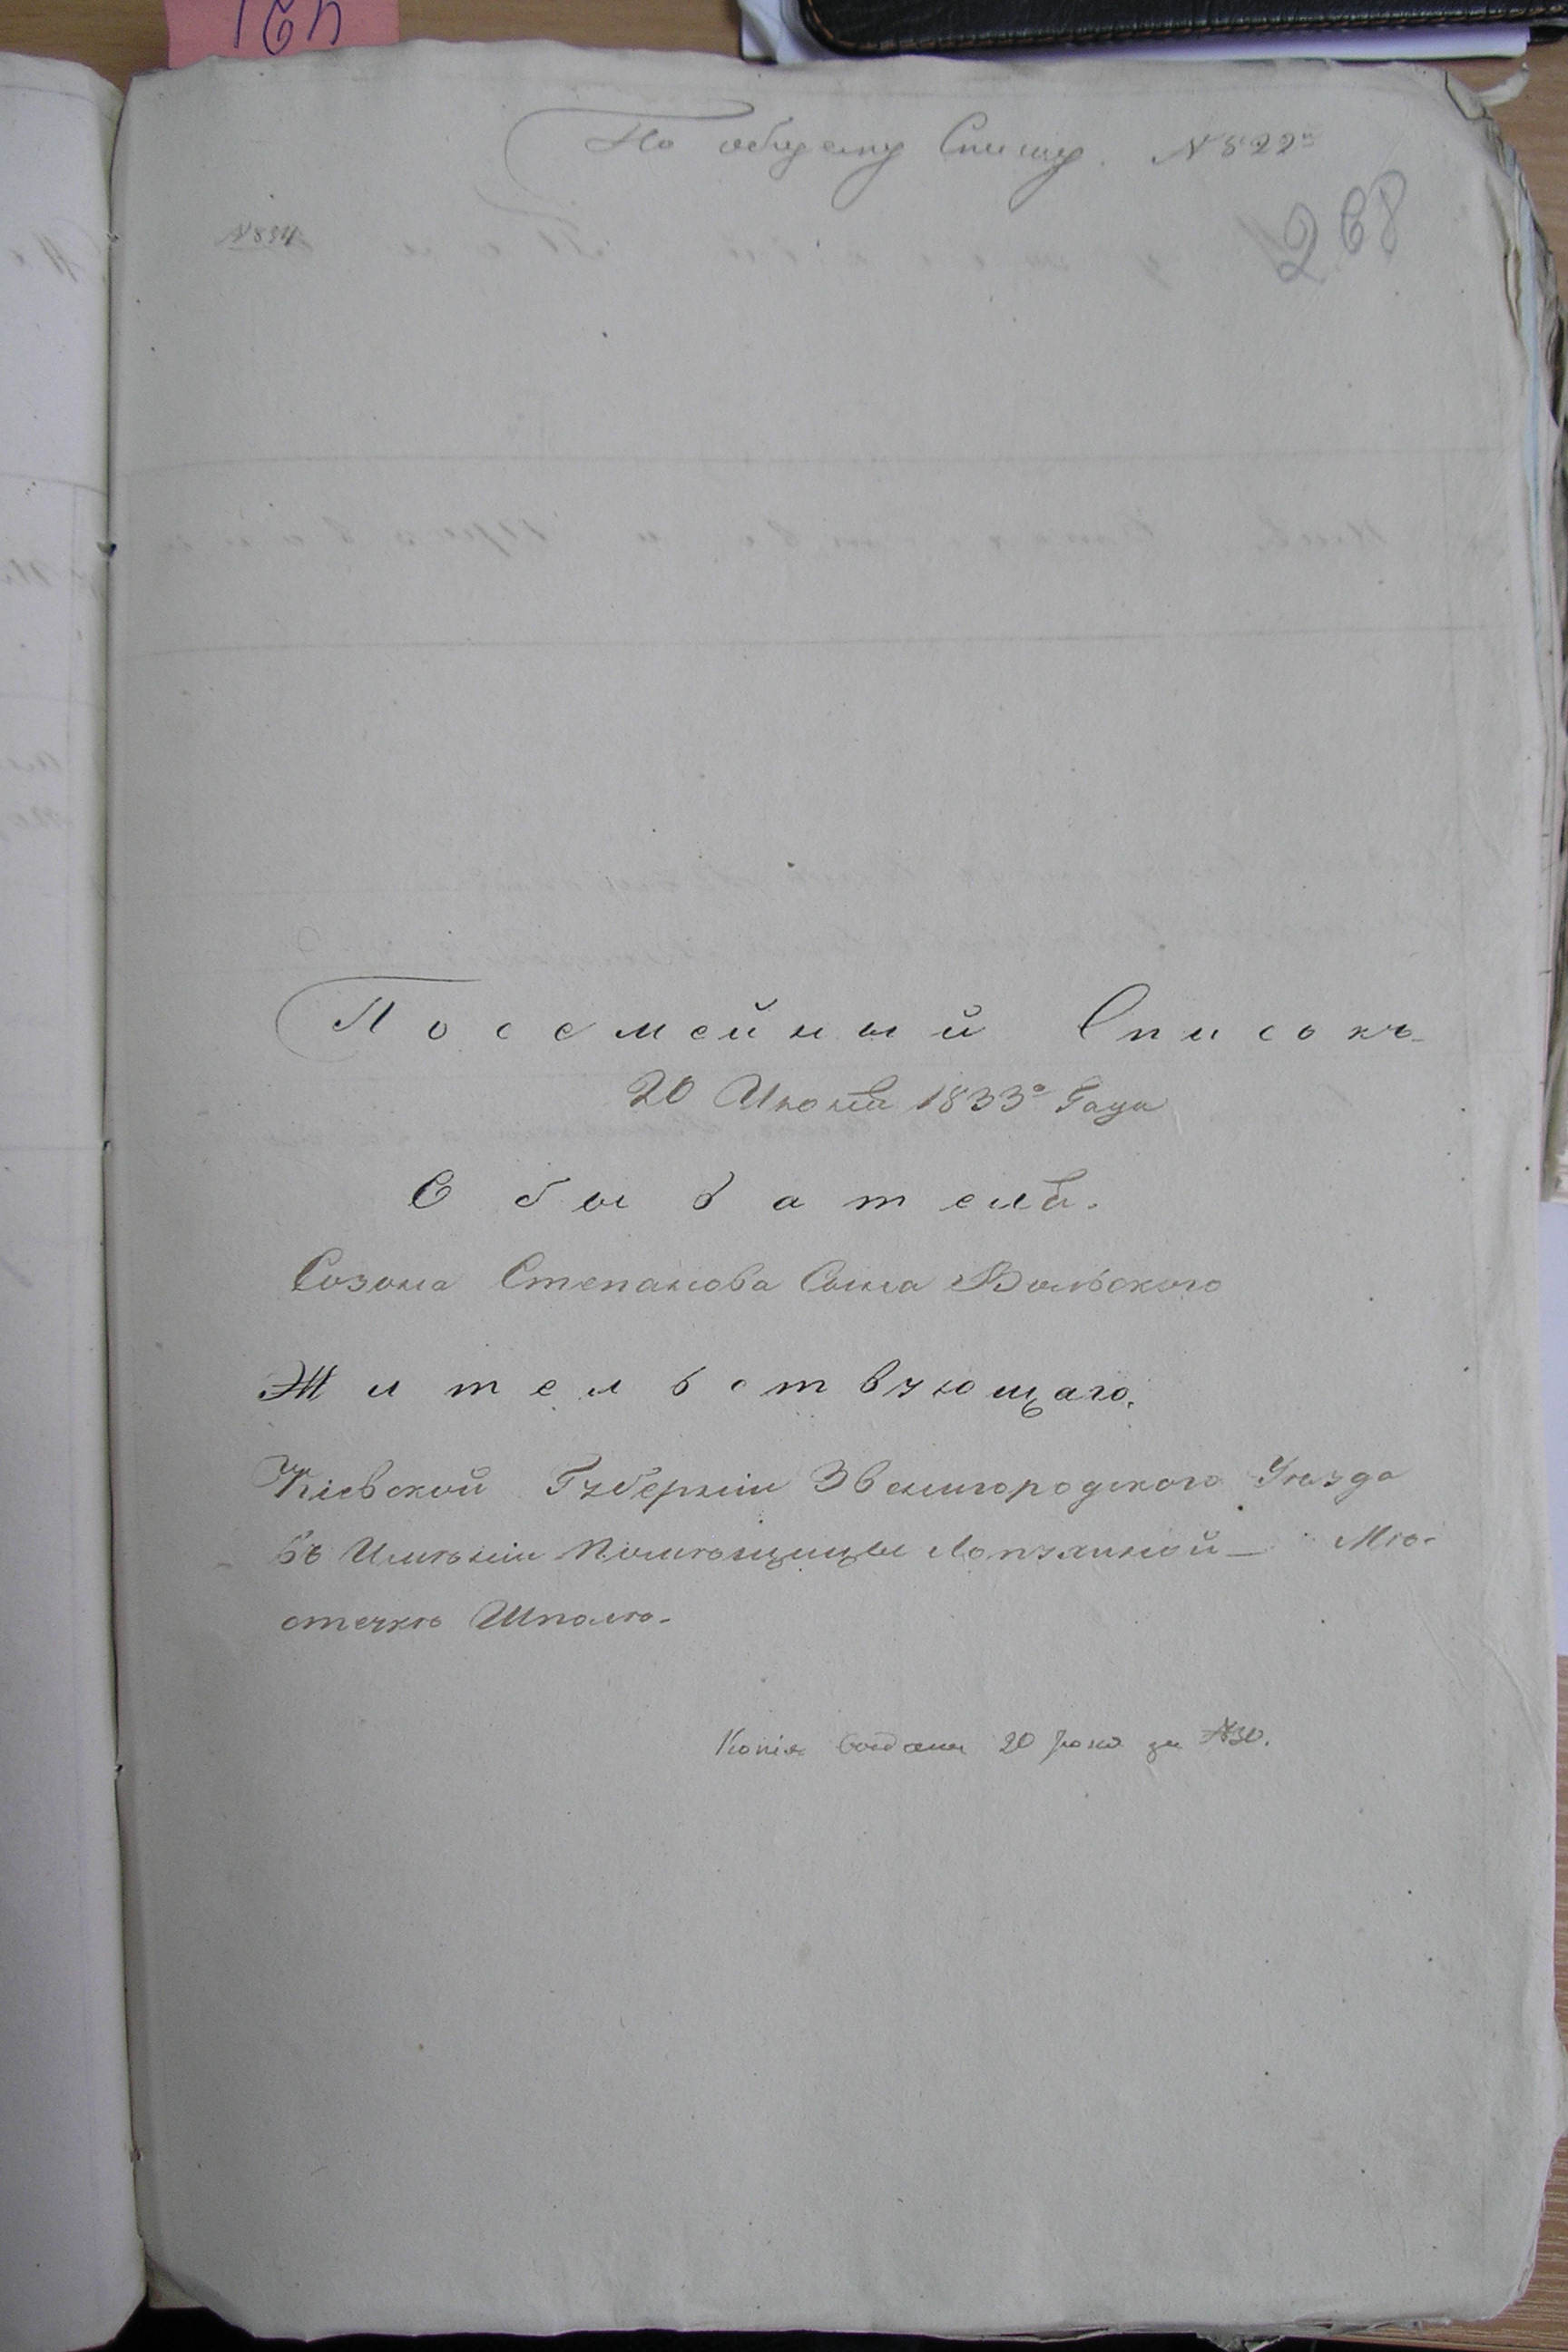 По общему Списку. N 822й
N 834
268
Посемейный Списокъ
20 Июня 1833го Года
Обывателя.
Созона Степанова Сына Вольского
Жительствующаго.
Кіевской Губерніи Звенигородского Уѣзда
въ Имѣніи Помѣщицы Лопухиной Мѣ-
стечкѣ Шполѣ.
Копія выдана 20 Июня за № 30.